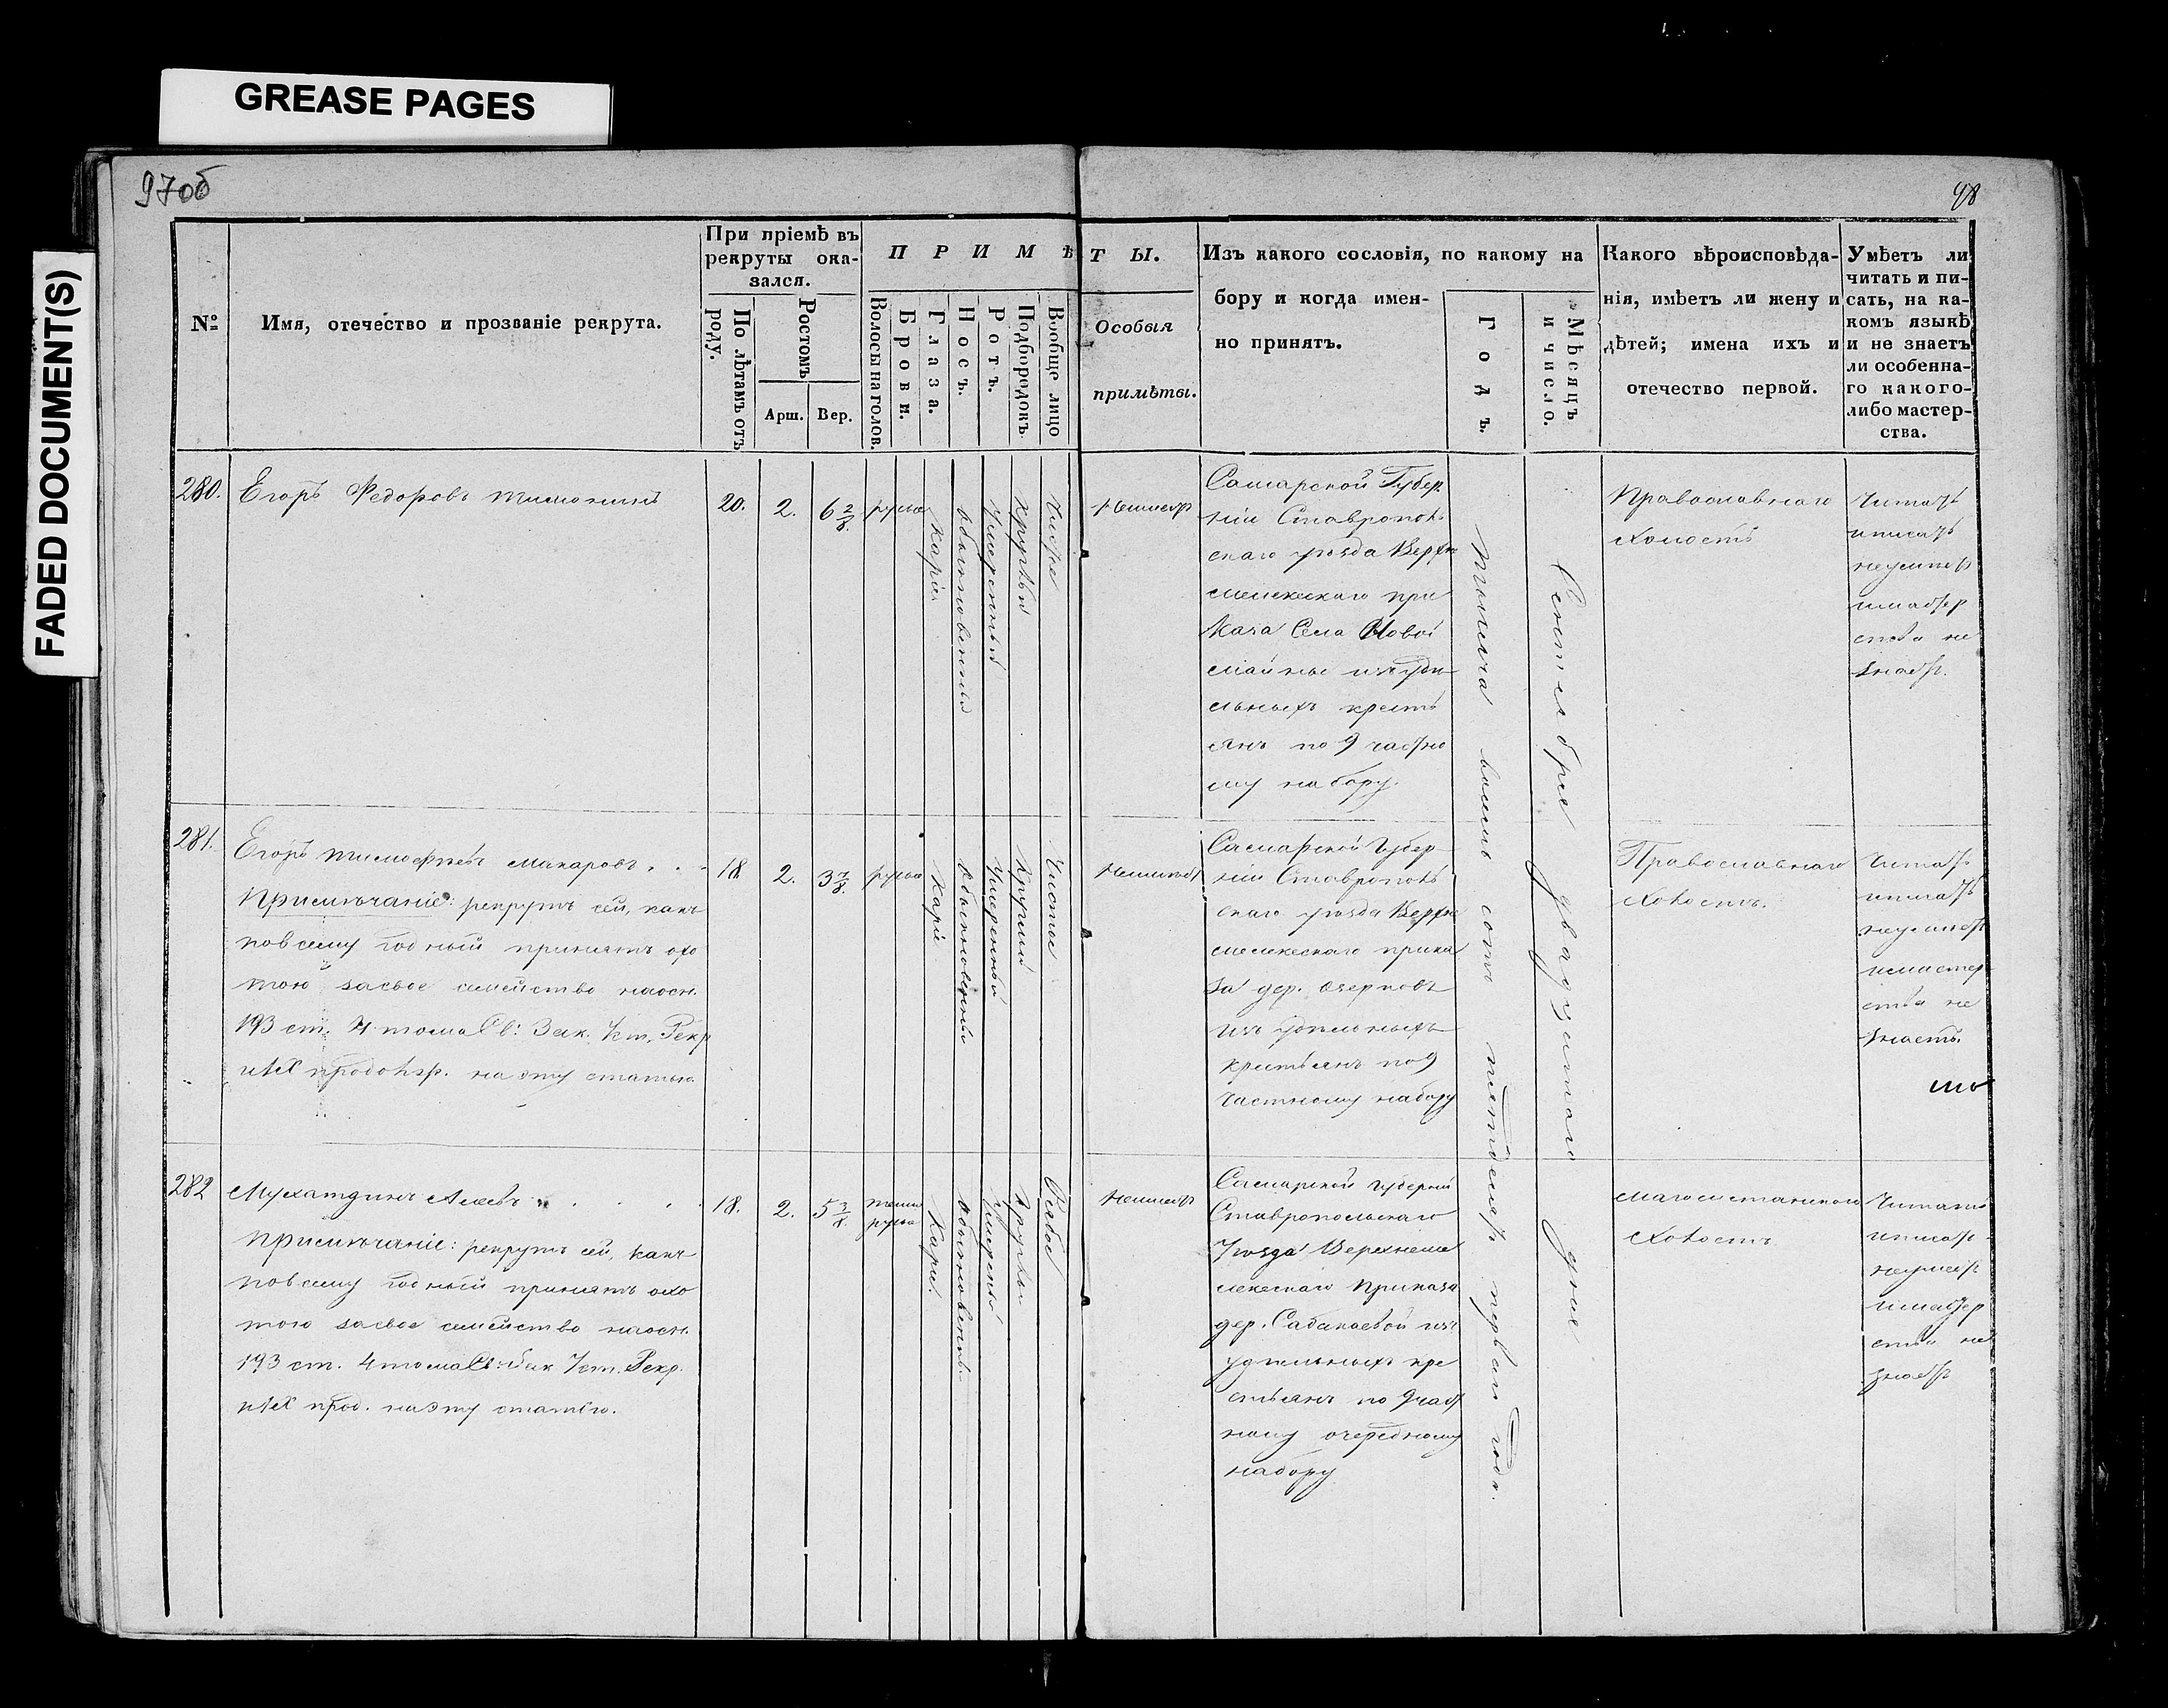 GREASE PAGES
FADED DOCUMENT(S)
97об
98
№
Имя, отечество и прозваніе рекрута.
При пріемѣ въ
рекруты ока-
зался.
По лѣтамъ отъ
роду.
Ростомъ
Арш.
Вер.
ПРИМѢТЫ.
Волосы на голов.
Брови.
Глаза.
Носъ.
Ротъ.
Подбородокъ
Вообще лицо
Особыя
примѣты.
Изъ какого сословія, по какому на
бору и когда имен-
но принятъ.
Годъ.
Мѣсяцъ
и число.
Какого вѣроисповѣда-
нія, имѣетъ ли жену и
дѣтей; имена ихъ и
отечество первой.
Умѣетъ ли
читать и пи-
сать, на ка-
комъ языкѣ
и не знаетъ
ли особенна-
го какого-
либо мастер-
ства.
280.
Егоръ Федоровъ
20.
2.
6 2/8.
русые
Каріе
обыкновенный
Умеренный
Круглый
Чистое
Неимеетъ
Самарской Губер
ніи Ставрополь
скаго уѣзда Верхне
мелекескаго при
каза Села Новой
майны изъ удѣ
льныхъ кресть
янъ по 9 частно
му набору.
тысяча восемь сотъ пятьдесятъ первого года.
Сентября двадцатаго дня
Православнаго
холостъ
Читать
и писать
неумеетъ
и мастер
ства не
знаетъ.
281.
Егоръ Тимофѣевъ Макаровъ
Примѣчаніе: рекрутъ сей, какъ
по всему годный принятъ охо
тою за свое семейство на осн.
193 ст. 4 тома Св: Зак. Уст. Рекр
и IX продолж. на эту статью.
18
2.
3 7/8.
русые
Каріе
обыкновенный
Умеренный
Круглый
Чистое
Неимеетъ
Самарской Губер
ніи Ставрополь
скаго уѣзда Верхне
мелекескаго прика
за дер.
изъ удѣльныхъ
крестьянъ по 9
частному набору
Православнаго
холостъ.
Читать
и писать
неумеетъ
и мастер
ства не
знаетъ.
282
Мухатдинъ
Примѣчаніе: рекрутъ сей, какъ
по всему годный принятъ охо
тою за свое семейство на осн.
193 ст. 4 тома Св: Зак Уст. Рекр.
и IX прод. на эту статью.
18.
2.
5 3/8.
темно
русые
Каріе
обыкновенн.
Умеренный
Круглый
Рябое
Неимеетъ
Самарской Губерніи
Ставропольскаго
Уѣзда Верхнеме
лекескаго Приказа
дер. Сабакаевой изъ
удѣльныхъ кре
стьянъ по 9 част
ному очередному
набору
Магометанскаго
холостъ
Читать
и писать
неумеетъ
и мастер
ства не
знаетъ